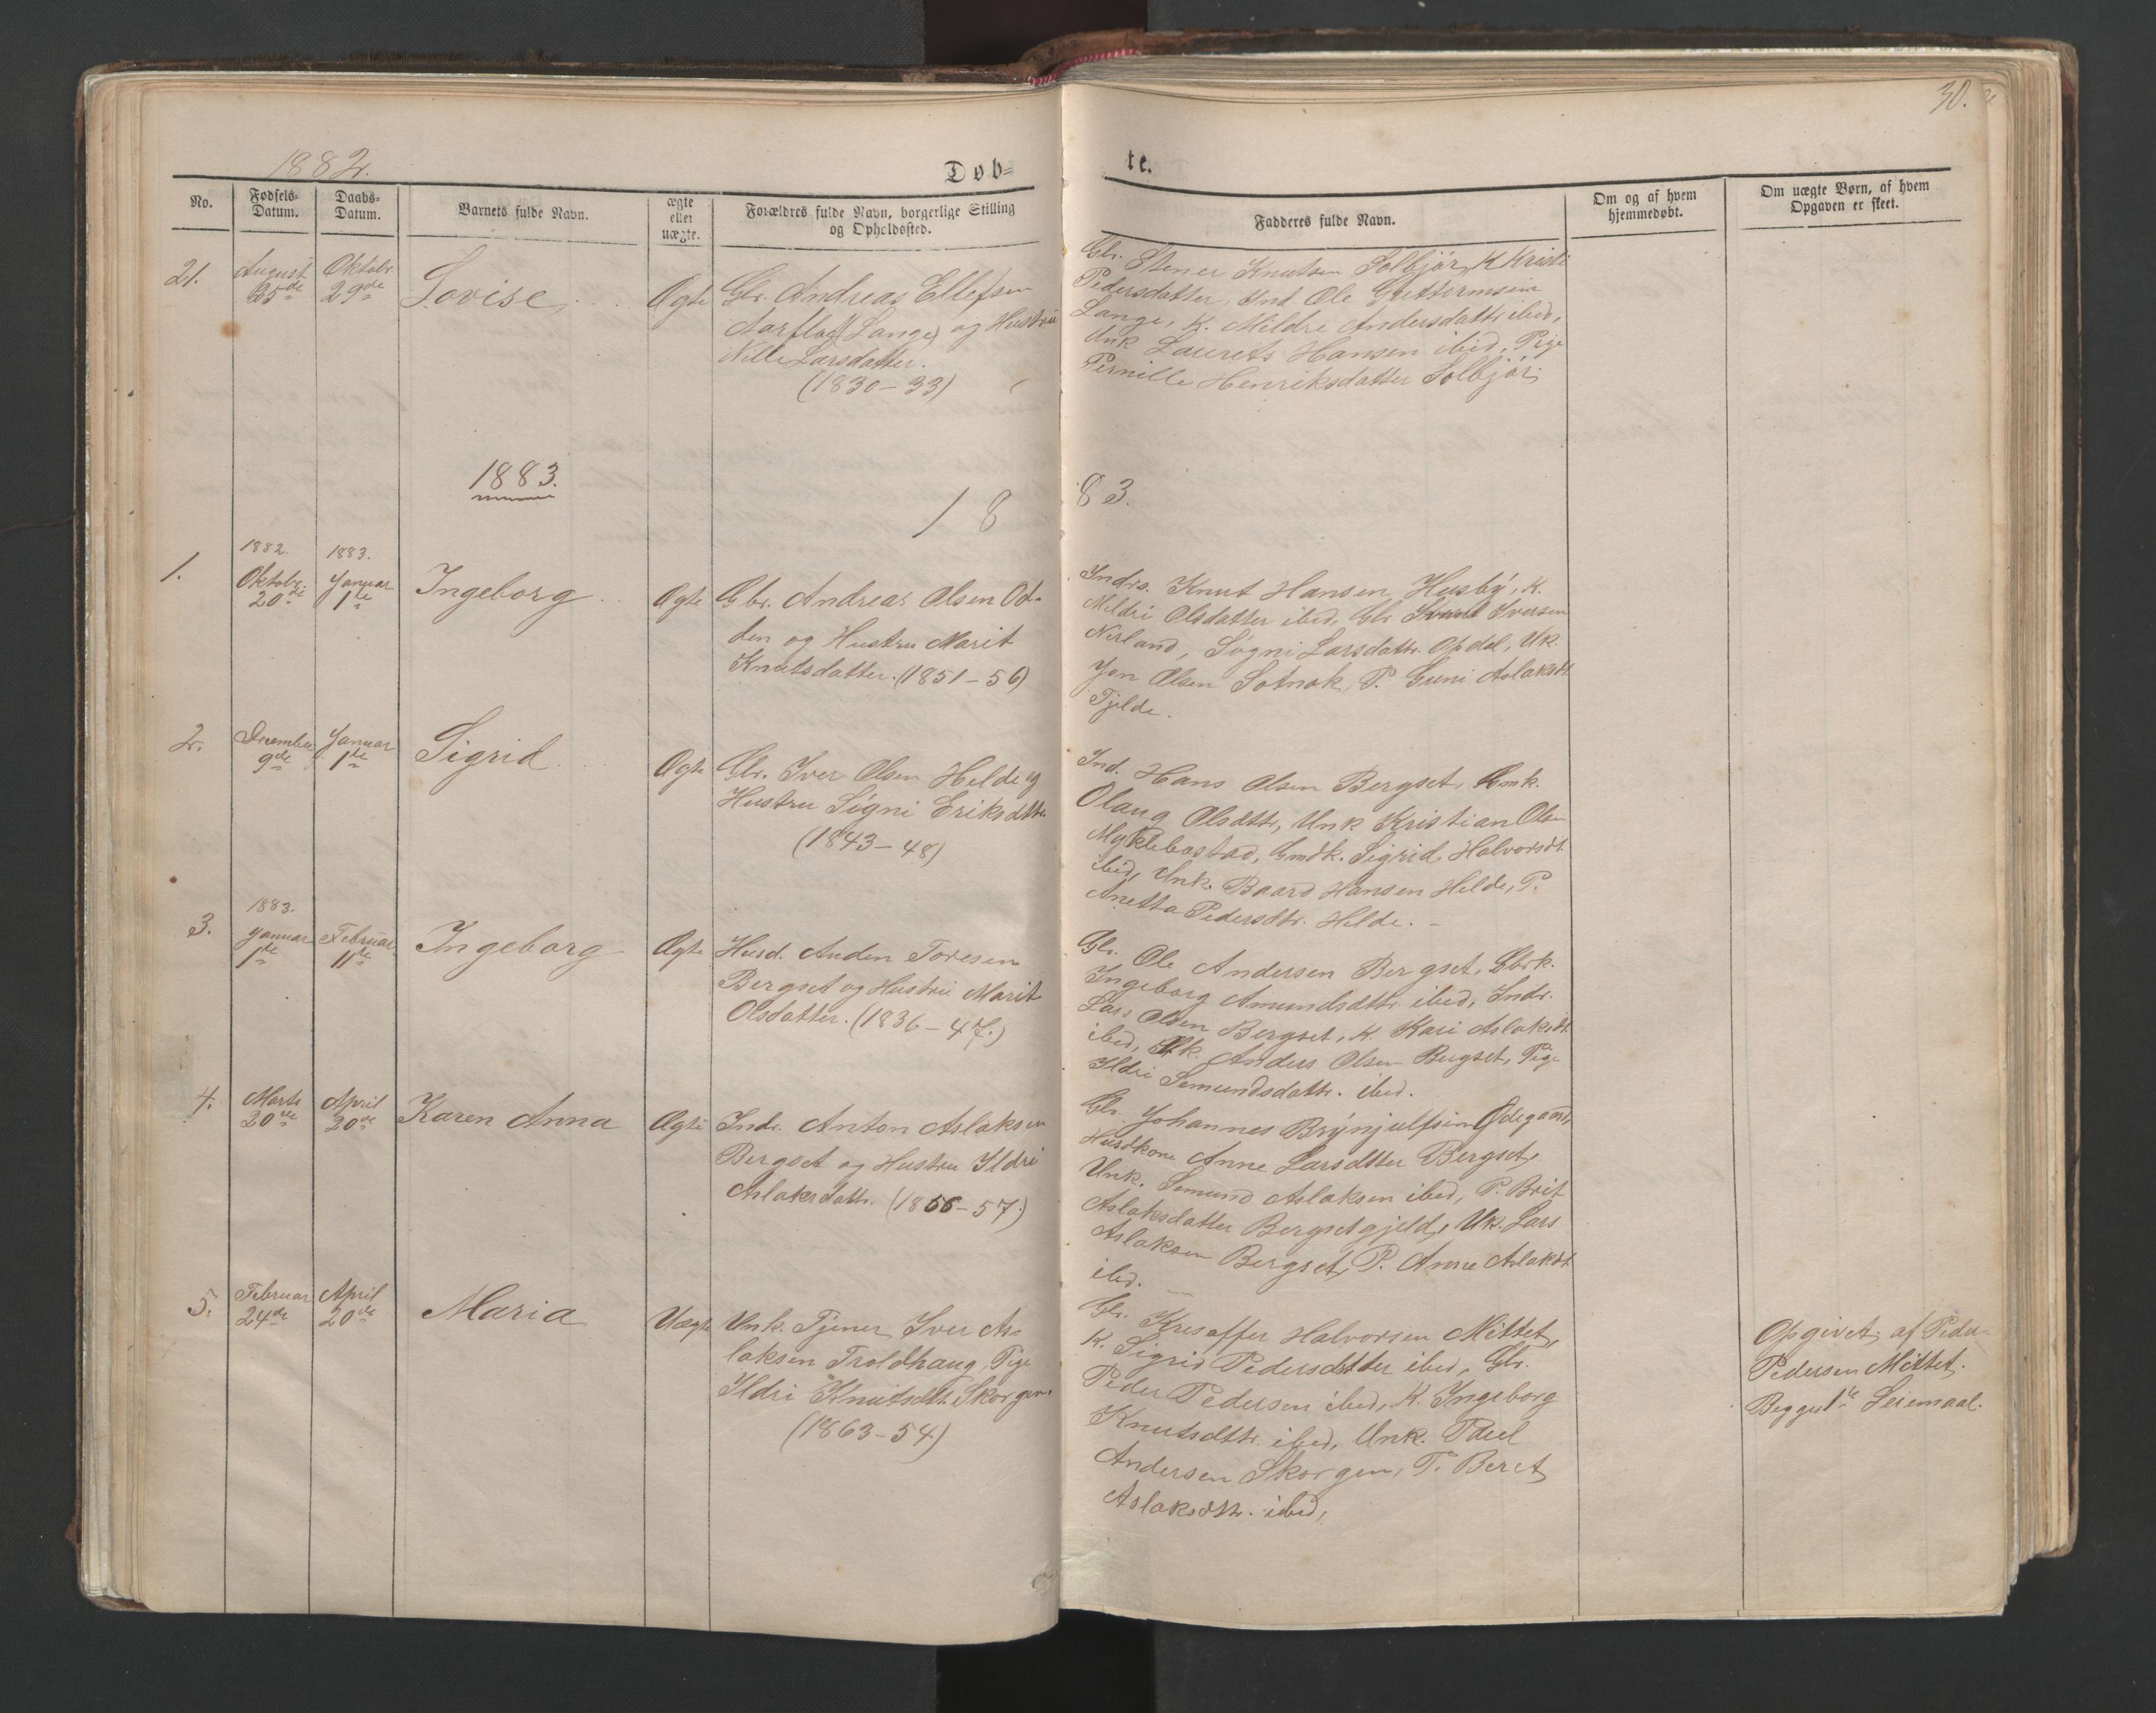 30.
1882.
Døb=
te.
No.
Fødsels-
Datum.
Daabs-
Datum.
Barnets fulde Navn.
ægte
eller
uægte.
Forældres fulde Navn, borgerlige Stilling
og Opholdssted.
Fadderes fulde Navn.
Om og af hvem
hjemmedøbt.
Om uægte Børn, af hvem
Opgaven er skeet.
21.
August
25de
Oktobr
29de
Lovise
Ægte
Gbr. Andreas Ellefsen
Aarflad (Lange) og Hustru
Nille Larsdatter.
(1830-33)
Gbr. Stener Knutsen Solbjør, K Kristi
Pedersdatter, Ind. Ole Guttormsen
Lange, K. Mildre Andersdattr ibid,
Unk Laurets Hansen ibid, Pige
Pernille Henriksdatter Solbjør.
1883.
18
83.
1.
1882.
Oktobr.
20de
1883.
Januar
1te
Ingeborg
Ægte
Gbr. Andreas Olsen Od-
den og Hustru Marit
Knutsdatter. (1851-56)
Indrs. Knut Hansen Husby, K.
Meldri Olsdatter ibid, Gbr Iversen
Nerland, Sygni Larsdattr. Opdøl, Uk.
Jon Olsen Sotnak, P. Guni Aslaksdt.
Tjelde.
2.
December
9de
Januar
1te
Sigrid
Ægte
Gbr. Iver Olsen Helde og
Hustru Signi Eriksdttr.
(1843-48)
Ind. Hans Olsen Bergset, Gmk.
Olaug Olsdttr, Unk Kristian Olsen
Myklebostad, Gmdk. Sigrid Halvorsdt.
ibid, Unk. Baard Hansen Helde, P.
Anetta Pedersdtr. Helde.
3.
1883.
Januar
1te
Februar
11te
Ingeborg
Ægte
Husd. Anden Toresen
Bergset og Hustru Marit
Olsdatter. (1836-47.)
Gbr. Ole Andersen Bergset, Gbrk.
Ingeborg Amundsdttr. ibid, Indr.
Lars Olsen Bergset, K. Kari Aslaksdt.
ibid, Uk. Anders Olsen Bergset, Pige
Ildri Semundsdattr. ibid.
4.
Marts
20de
April
20de
Karen Anna
Ægte
Indr. Anton Aslaksen
Bergset og Hustru Ildri
Aslaksdattr. (1856-57.)
Gbr. Johannes Brynjulfsen Ødegaard,
Husdkone Anne Larsdtter Bergset,
Unk. Semund Aslaksen ibid, P. Brit
Aslaksdatter Bergsetgjeld, Uk. Lars
Aslaksen Bergset, P. Anne Aslaksdt.
ibid.
5.
Februar
24de
April
20de
Maria
Uægte
Unk. Tjener Iver As-
laksen Troldhaug, Pige
Ildri Knutsdtt. Skorgen.
(1863-54)
Gbr. Kristoffer Halvorsen Mittet,
K. Sigrid Pedersdtter ibid, Gbr.
Peder Pedersen ibid, K. Ingeborg
Knutsdttr. ibid, Unk. Poul
Andersen Skorgen, P. Beret
Aslaksdttr. ibid,
Opgivet af Peder
Pedersen Mittet.
Begges 1te Leiermaal.